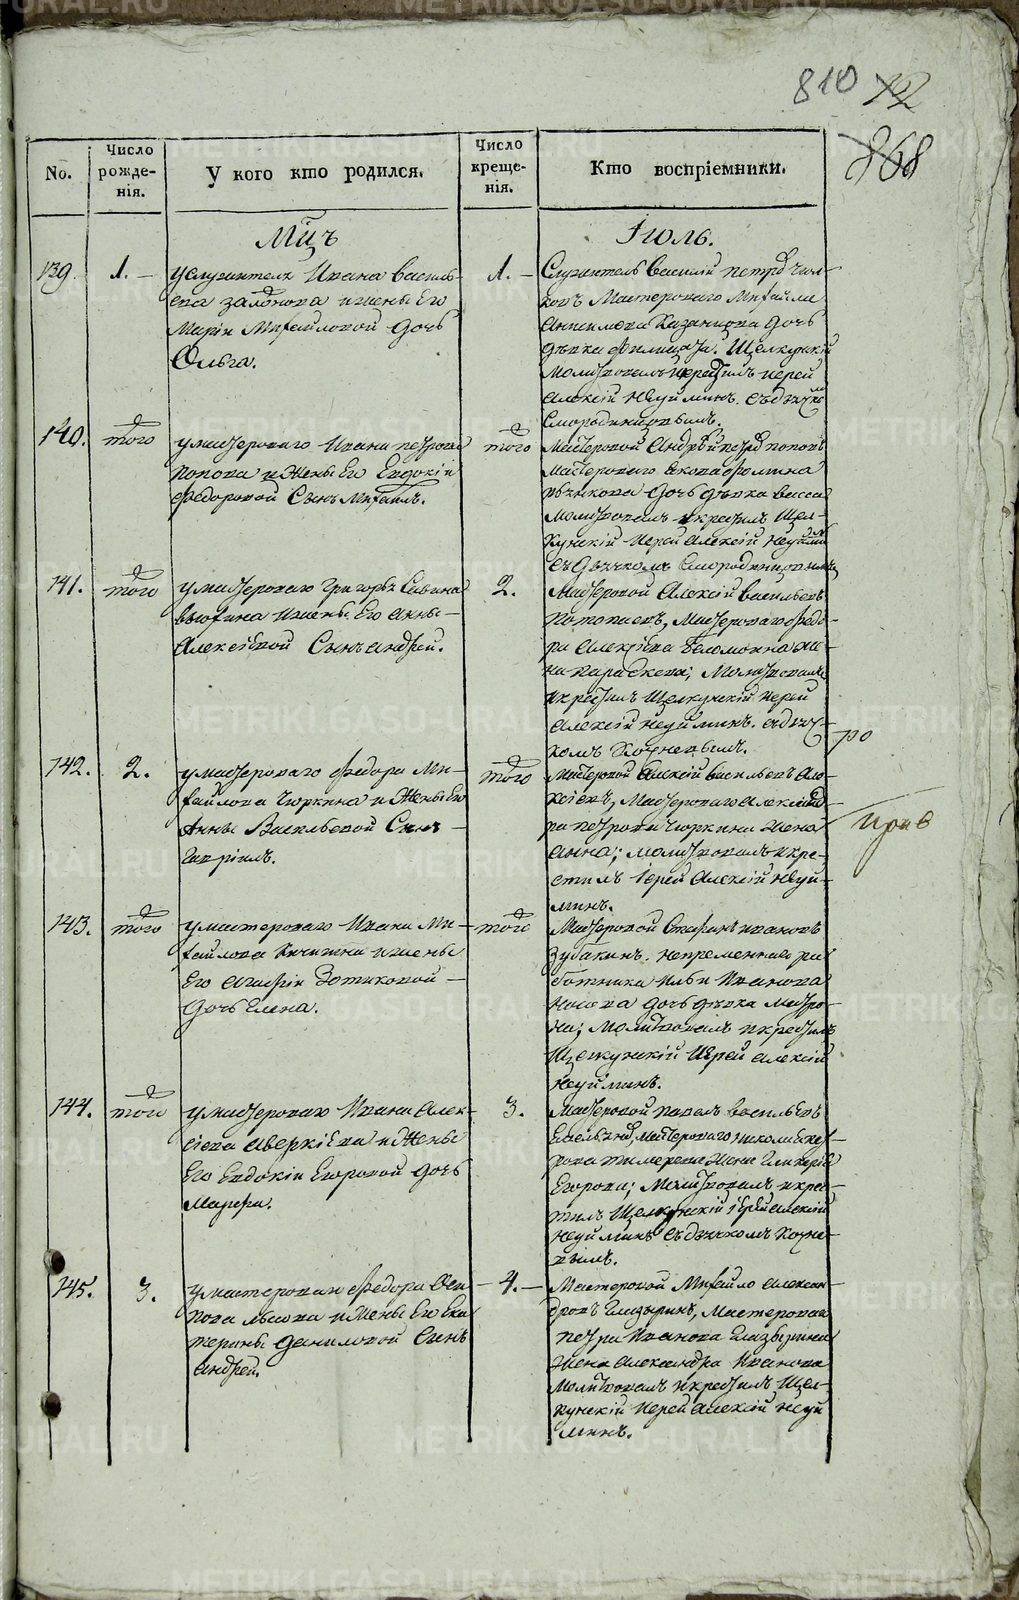 810 12
868
No.
Число рожденія.
У кого кто родился.
Число крещенія.
Кто воспріемники.
Мцъ
Іюль.
139. 1.
у служителя Ивана Василь-
ева
и жены Его
Маріи Михайловой дочь
Ольга.
1.
Служитель Василій Петровъ
Мастероваго Михайла
Казанцова дочь
дѣвка Филицата. Щелкунскій
Молитвовалъ и крестилъ іерей
Алексій Неуйминъ. съ дьячко
Смородинцовымъ.
140. того
у мастероваго Ивана Петрова
Попова и жены Его Евдокіи
Федоровой Сынъ Михаилъ.
того
Мастеровой Андрей Петровъ Поповъ
Мастероваго Якова Фомина
дочь дѣвка Васса
Молитвовалъ и крестилъ Щел-
кунскій Іерей Алексій Неуйминъ
съ Дьячкомъ Смородинцовымъ
141. того
у мастероваго Григорья Савина
Вьюхина и жены Его Анны
Алексѣевой Сынъ Андрей.
2.
Мастеровой Алексій Васильевъ
Потопаевъ, Мастероваго Федо-
ра Алексѣева Беломоина же-
на Параскева; Молитвовалъ
и крестилъ Щелкунскій іерей
Алексій Неуйминъ. съ дьяч-
комъ Кочневымъ.
142. 2.
у мастероваго Федора Ми-
хайлова Чюркина и Жены Его
Анны Васильевой Сынъ
Гавріилъ.
того
Мастеровой Алексій Васильевъ Але-
ксіевъ, Мастероваго
Петрова Чюркина жена
Анна; молитвовалъ и кре-
стилъ Іерей Алексій Неуй-
минъ.
143. того
у мастероваго Ивана Ми-
хайлова Кичигина и жены
Его Агафіи Зотиковой
Дочь Елена.
того
Мастеровой Стефанъ Ивановъ
Зубакинъ. непременнаго ра-
ботника Ильи Иванова
Носова дочь дѣвка Матро-
на; Молитвовалъ и крестилъ
Щелкунскій Іерей Алексій
Неуйминъ.
144. того
у мастероваго Ивана Алек-
сіева Аверкіева и Жены
Его Евдокіи Егоровой Дочь
Марфа.
3.
Мастеровой Павелъ Васильевъ
Мастероваго Николая
жена Гликерія
Егорова; Молитвовалъ и крес-
тилъ Щелкунскій іерей Алексій
Неуйминъ съ дьячкомъ Кочне-
вымъ.
145. 3.
у мастероваго Федора Оси-
пова Лысова и Жены Его Ека-
терины Даниловой Сынъ
Андрей.
4.
Мастеровой Михайло Алексан-
дровъ Глазыринъ, Мастероваго
Петра Иванова Глазырина
Жена Александра Иванова
Молитвовалъ и крестилъ Щел-
кунскій Іерей Алексій Неуй
минъ.
METRIKI.GASO-URAL.RU